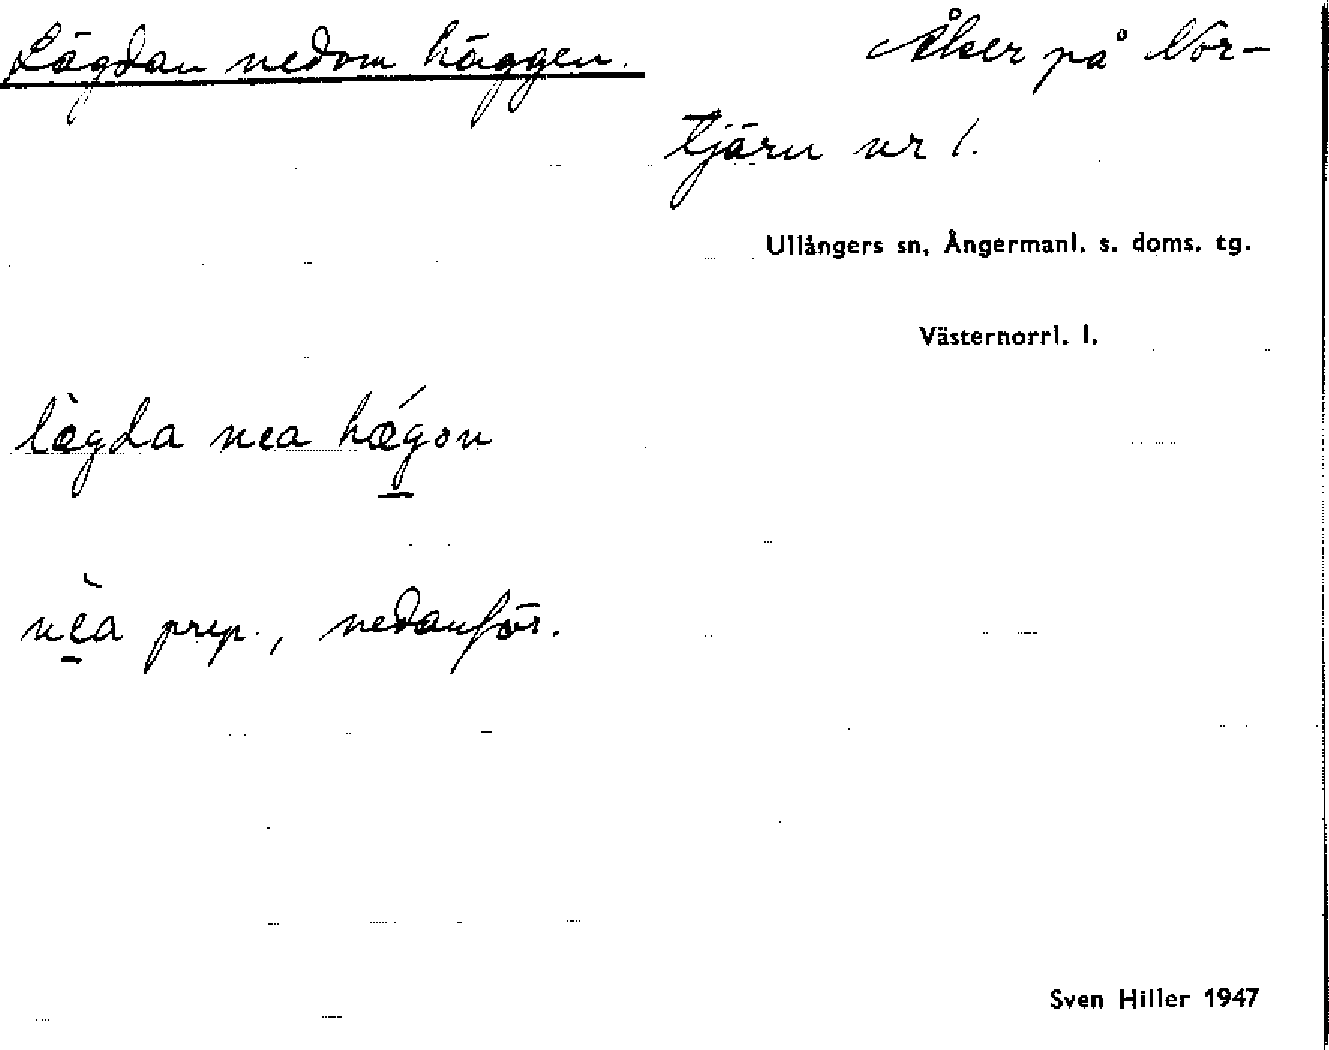 Lägdan nedom häggen.
Åker på Nor-
tjärn nr 1.
Ullångers sn, Ångermanl. s. doms. tg.
Västernorrl. l.
læ̀gda nea hǽgon
nèa prep., nedanför.
Sven Hiller 1947